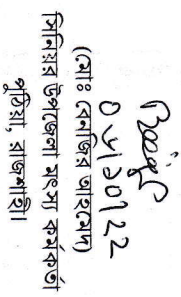 (মোঃ বেনজির আহমেদ)
সিনিয়র উপজেলা মৎস্য কর্মকর্তা
পুঠিয়া, রাজশাহী।